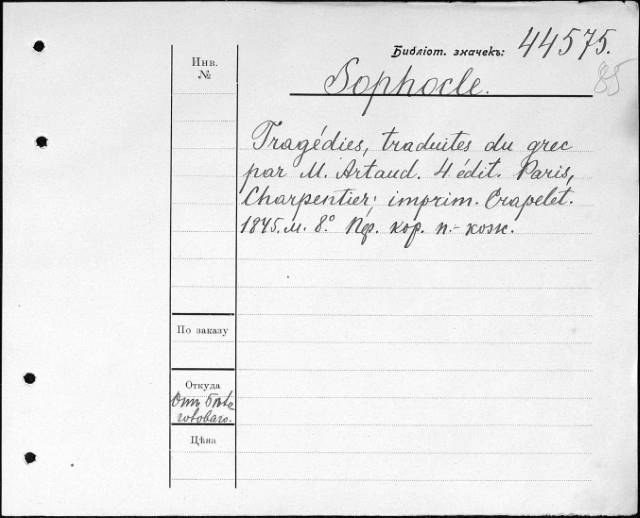 Библіот. значекъ: 44575.
85
Инв. №
Sophocle.
Tragédies, traduites du grec
par M. Artaud. 4 édit. Paris,
Charpentier; imprim. Crapelet.
1845. м. 8.° кор. п.-кож.
По заказу
Откуда
Отъ
Цѣна